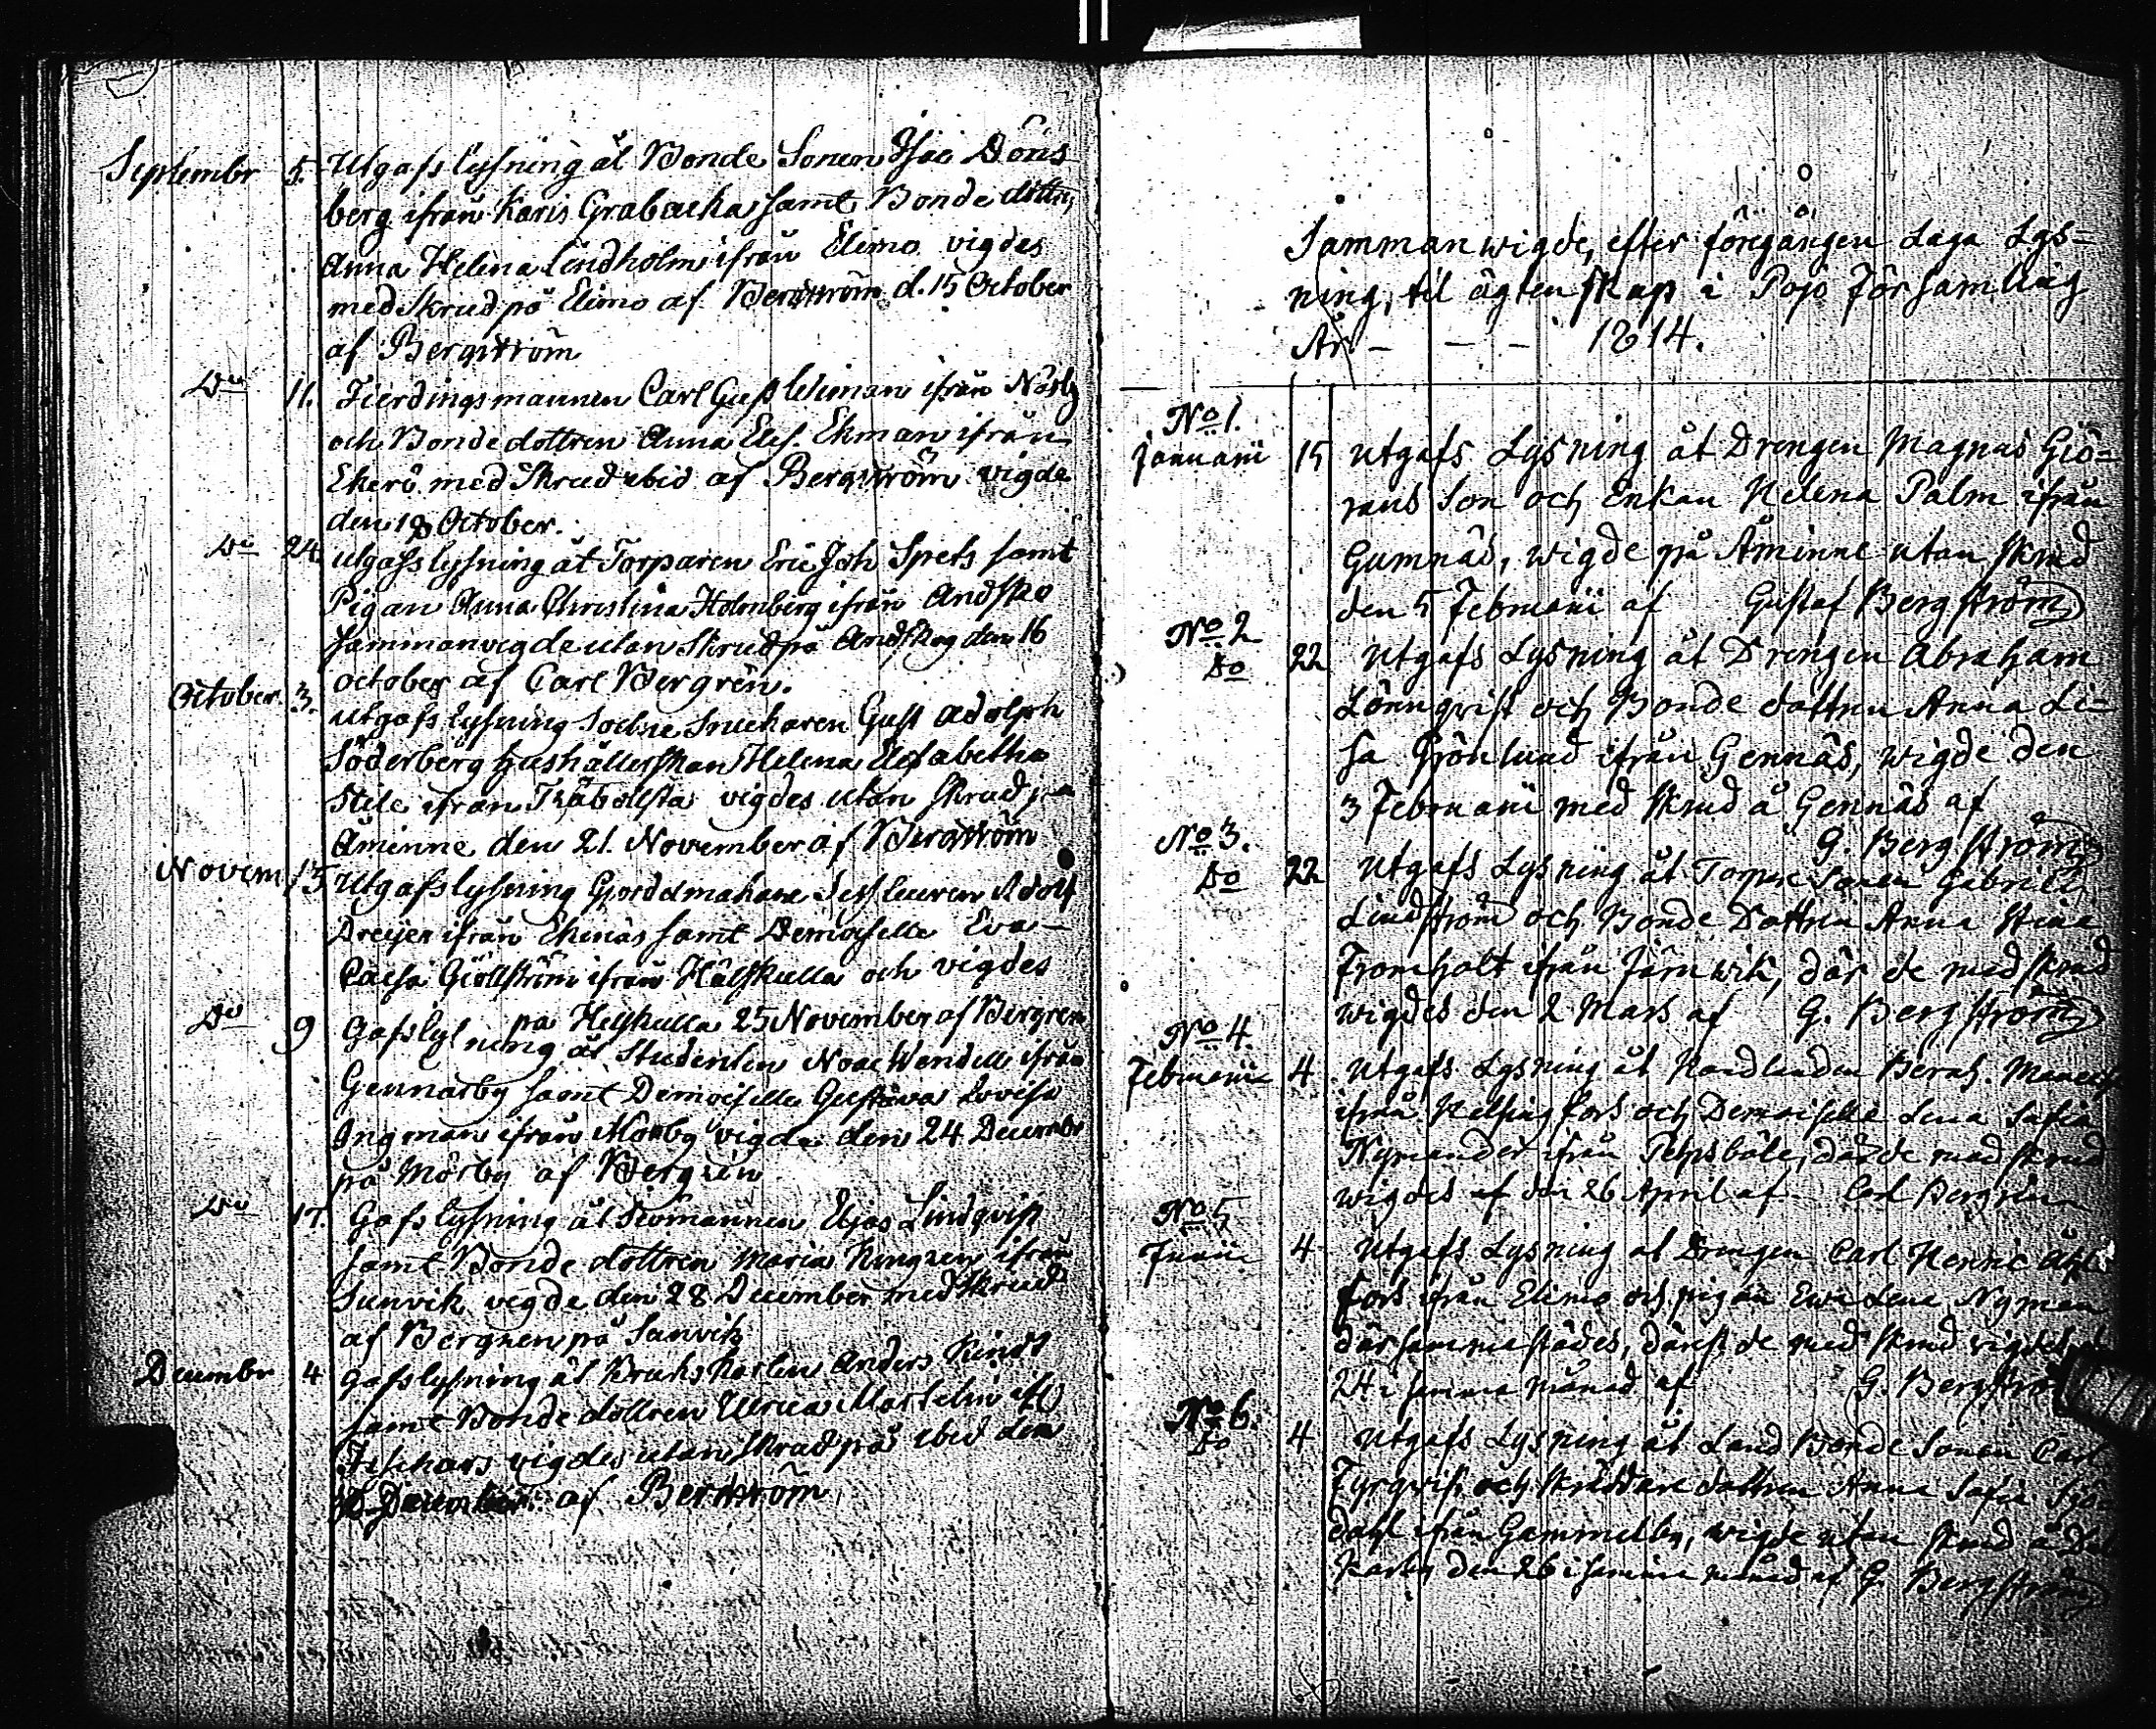 Septembr 5. Utgafs lysning åt Bonde Sonen Isac Döns
berg ifrån Karis Grabacka samt Bonde dottr,
Anna Helena Lindholm ifrån Elimo vigdes
med Skrud på Elimo af Bergström d. 15 October
af Bergström
Do 11. Fierdingsmannen Carl Gust Wiman ifrån Näsby
och Bonde dottren Anna Elis. Ekman ifrån
Ekerö med Skrud ibid af Bergström vigde
den 18 October.
Do 24. Utgafs lysning åt Torparen Eric Joh Spets samt
Pigan Anna Christina Holmberg ifrån Andsko
sammanvigde utan Skrud på Andskog den 16
october af Carl Bergrén.
October 3. Utgafs lysning Sockne Snickaren Gust Adolph
Söderberg hushållerskan Helena Elisabetha
Stile ifrån Träbollsta vigdes utan skrud på
Åminne den 21. November af Bergström
Novem 13 Utgafs lysning Gjorddmakare Adolf
Dreijer ifrån Ekenäs samt Demoiselle Eva
Caisa Giöllström ifrån Hälskulla och vigdes
på Helskulla 25 November af Bergren
Do 9 Gafs lysning åt Studenten Noac Wendell ifrån
Gennarby samt Demoiselle Gustava Lovisa
Ingman ifrån Mörby vigde den 24 Decembr
på Mörby af Bergrén
Do 17. Gafs lysning åt Elias Lindqvist
samt Bonde dottren Maria ifrån
Sunvik vigde den 28 December med Skrud
af Bergren på Sunvik
Decembr 4 Gafs lysning åt Bruks Karlen Anders
samt Bonde dottren Ulrica
Fiskars vigdes utan Skrud på ibid den
af Bergström
Sammanwigde, efter föregången Laga Lys=
ning, til ägtenskap i Pojo Församling
År - - - 1814.
No 1.
Januarii 15 Utgafs Lysning åt Drengen Magnus Giö=
rans Son och Enkan Helena Palm ifrån
Gumnäs, wigde på Åminne utan skrud
den 5 Februarii af Gustaf Bergström
No 2
Do 22 Utgafs Lysning åt Drengen Abraham
Lönnqvist och Bonde dottren Anna Li=
sa Grönlund ifrån Gennäs, wigde den
3 Februarii med skrud å Gennäs af
G. Bergström
No 3.
Do 22 Utgafs Lysning åt Torpare Sonen Gabriel
Lindström och Bonde Dottren Anna Stina
Fromholt ifrån Järnwik, där de med skrud
wigdes den 2 Mars af G. Bergström
No 4.
Februarii 4 Utgafs Lysning åt Handlanden Bernh.
ifrån Helsingfors och Demoiselle Lena Sofia
Nymander ifrån Pehrsböle, där de med skrud
wigdes af den 26 April af Carl Bergrén
No 5
Junii 4 Utgafs Lysning åt Drengen Carl Henric
fors ifrån Elimo och pigan Ewa Lena Nyman
där sammastädes, därst de med skrud vigdes
24 i samma månad af G. Bergström
No 6.
Do 4 Utgafs Lysning åt Land Bonde Sonen Carl
Fyrqvist och Skräddare dottren Anna Sofia Sjö=
dahl ifrån Gammelby, wigde utan skrud å Dal
karby den 26 i samma månad af G. Bergström